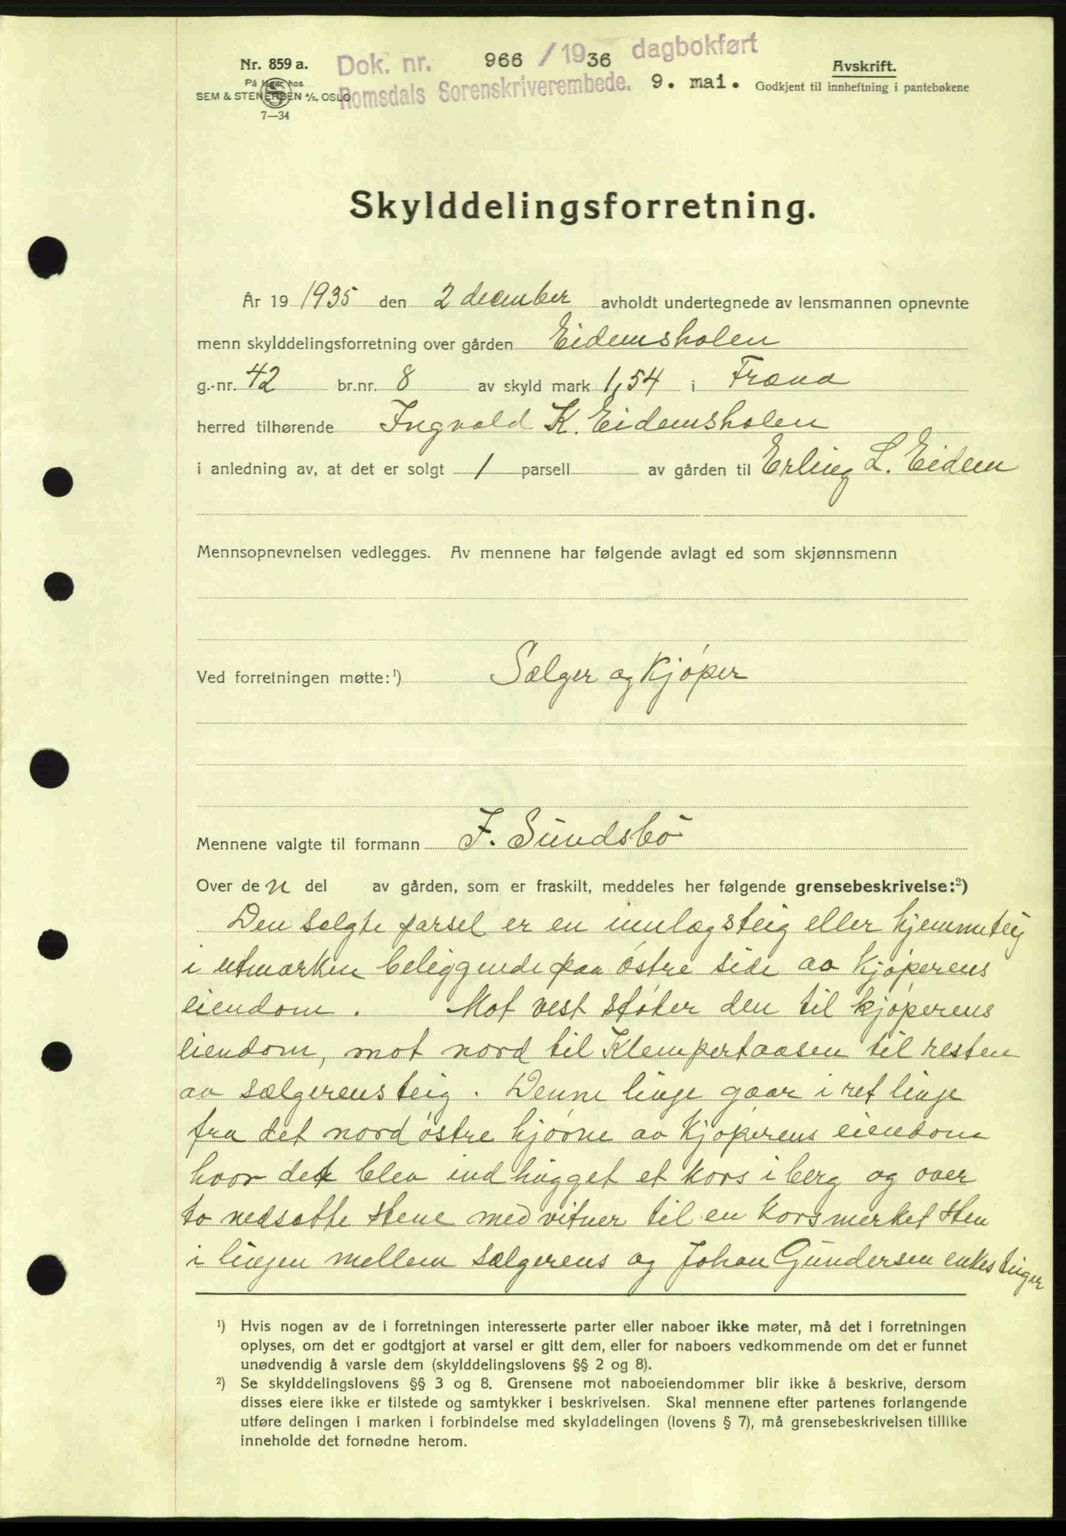 Nr. 859 a.
På lager hos
SEM & STENERSEN A/S, OSLO
7—34
Dok. nr. 966 / 1936 dagbokført
Romsdals Sorenskriverembede. 9. mai.
Avskrift.
Godkjent til innheftning i pantebøkene
Skylddelingsforretning.
År 19 1935 den 2 december avholdt undertegnede av lensmannen opnevnte
menn skylddelingsforretning over gården Eidemsholen
g.-nr. 42 br.nr. 8 av skyld mark 1,54 i Fræna
herred tilhørende Ingvald K. Eidemsholen
i anledning av, at det er solgt 1 parsell av gården til Erling L. Eidem
Mennsopnevnelsen vedlegges. Av mennene har følgende avlagt ed som skjønnsmenn
Ved forretningen møtte:¹) Sælger og Kjöper
Mennene valgte til formann J. Sundsbö
Over de n del av gården, som er fraskilt, meddeles her følgende grensebeskrivelse:²)
Den solgte parsel er en innlægsteig eller hjemmteig
i utmarken beliggende paa östre side av kjöperens
eiendom. Mot vest stöter den til kjöperens
eiendom, mot nord til Klempertaasen til resten
av sælgerens teig. Denne linje gaar i ret linje
fra det nord östre hjörne av Kjöperens eiendom
hvor det blev indhugget et kors i berg og over
to nedsatte stene med vitner til en korsmerket sten
i linjen mellem sælgerens og Johan Gundersen enkes teiger
¹) Hvis nogen av de i forretningen interesserte parter eller naboer ikke møter, må det i forretningen
oplyses, om det er godtgjort at varsel er gitt dem, eller for naboers vedkommende om det er funnet
unødvendig å varsle dem (skylddelingslovens §§ 2 og 8).
²) Se skylddelingslovens §§ 3 og 8. Grensene mot naboeiendommer blir ikke å beskrive, dersom
disses eiere ikke er tilstede og samtykker i beskrivelsen. Skal mennene efter partenes forlangende
utføre delingen i marken i forbindelse med skylddelingen (lovens § 7), må grensebeskrivelsen tillike
inneholde det fornødne herom.